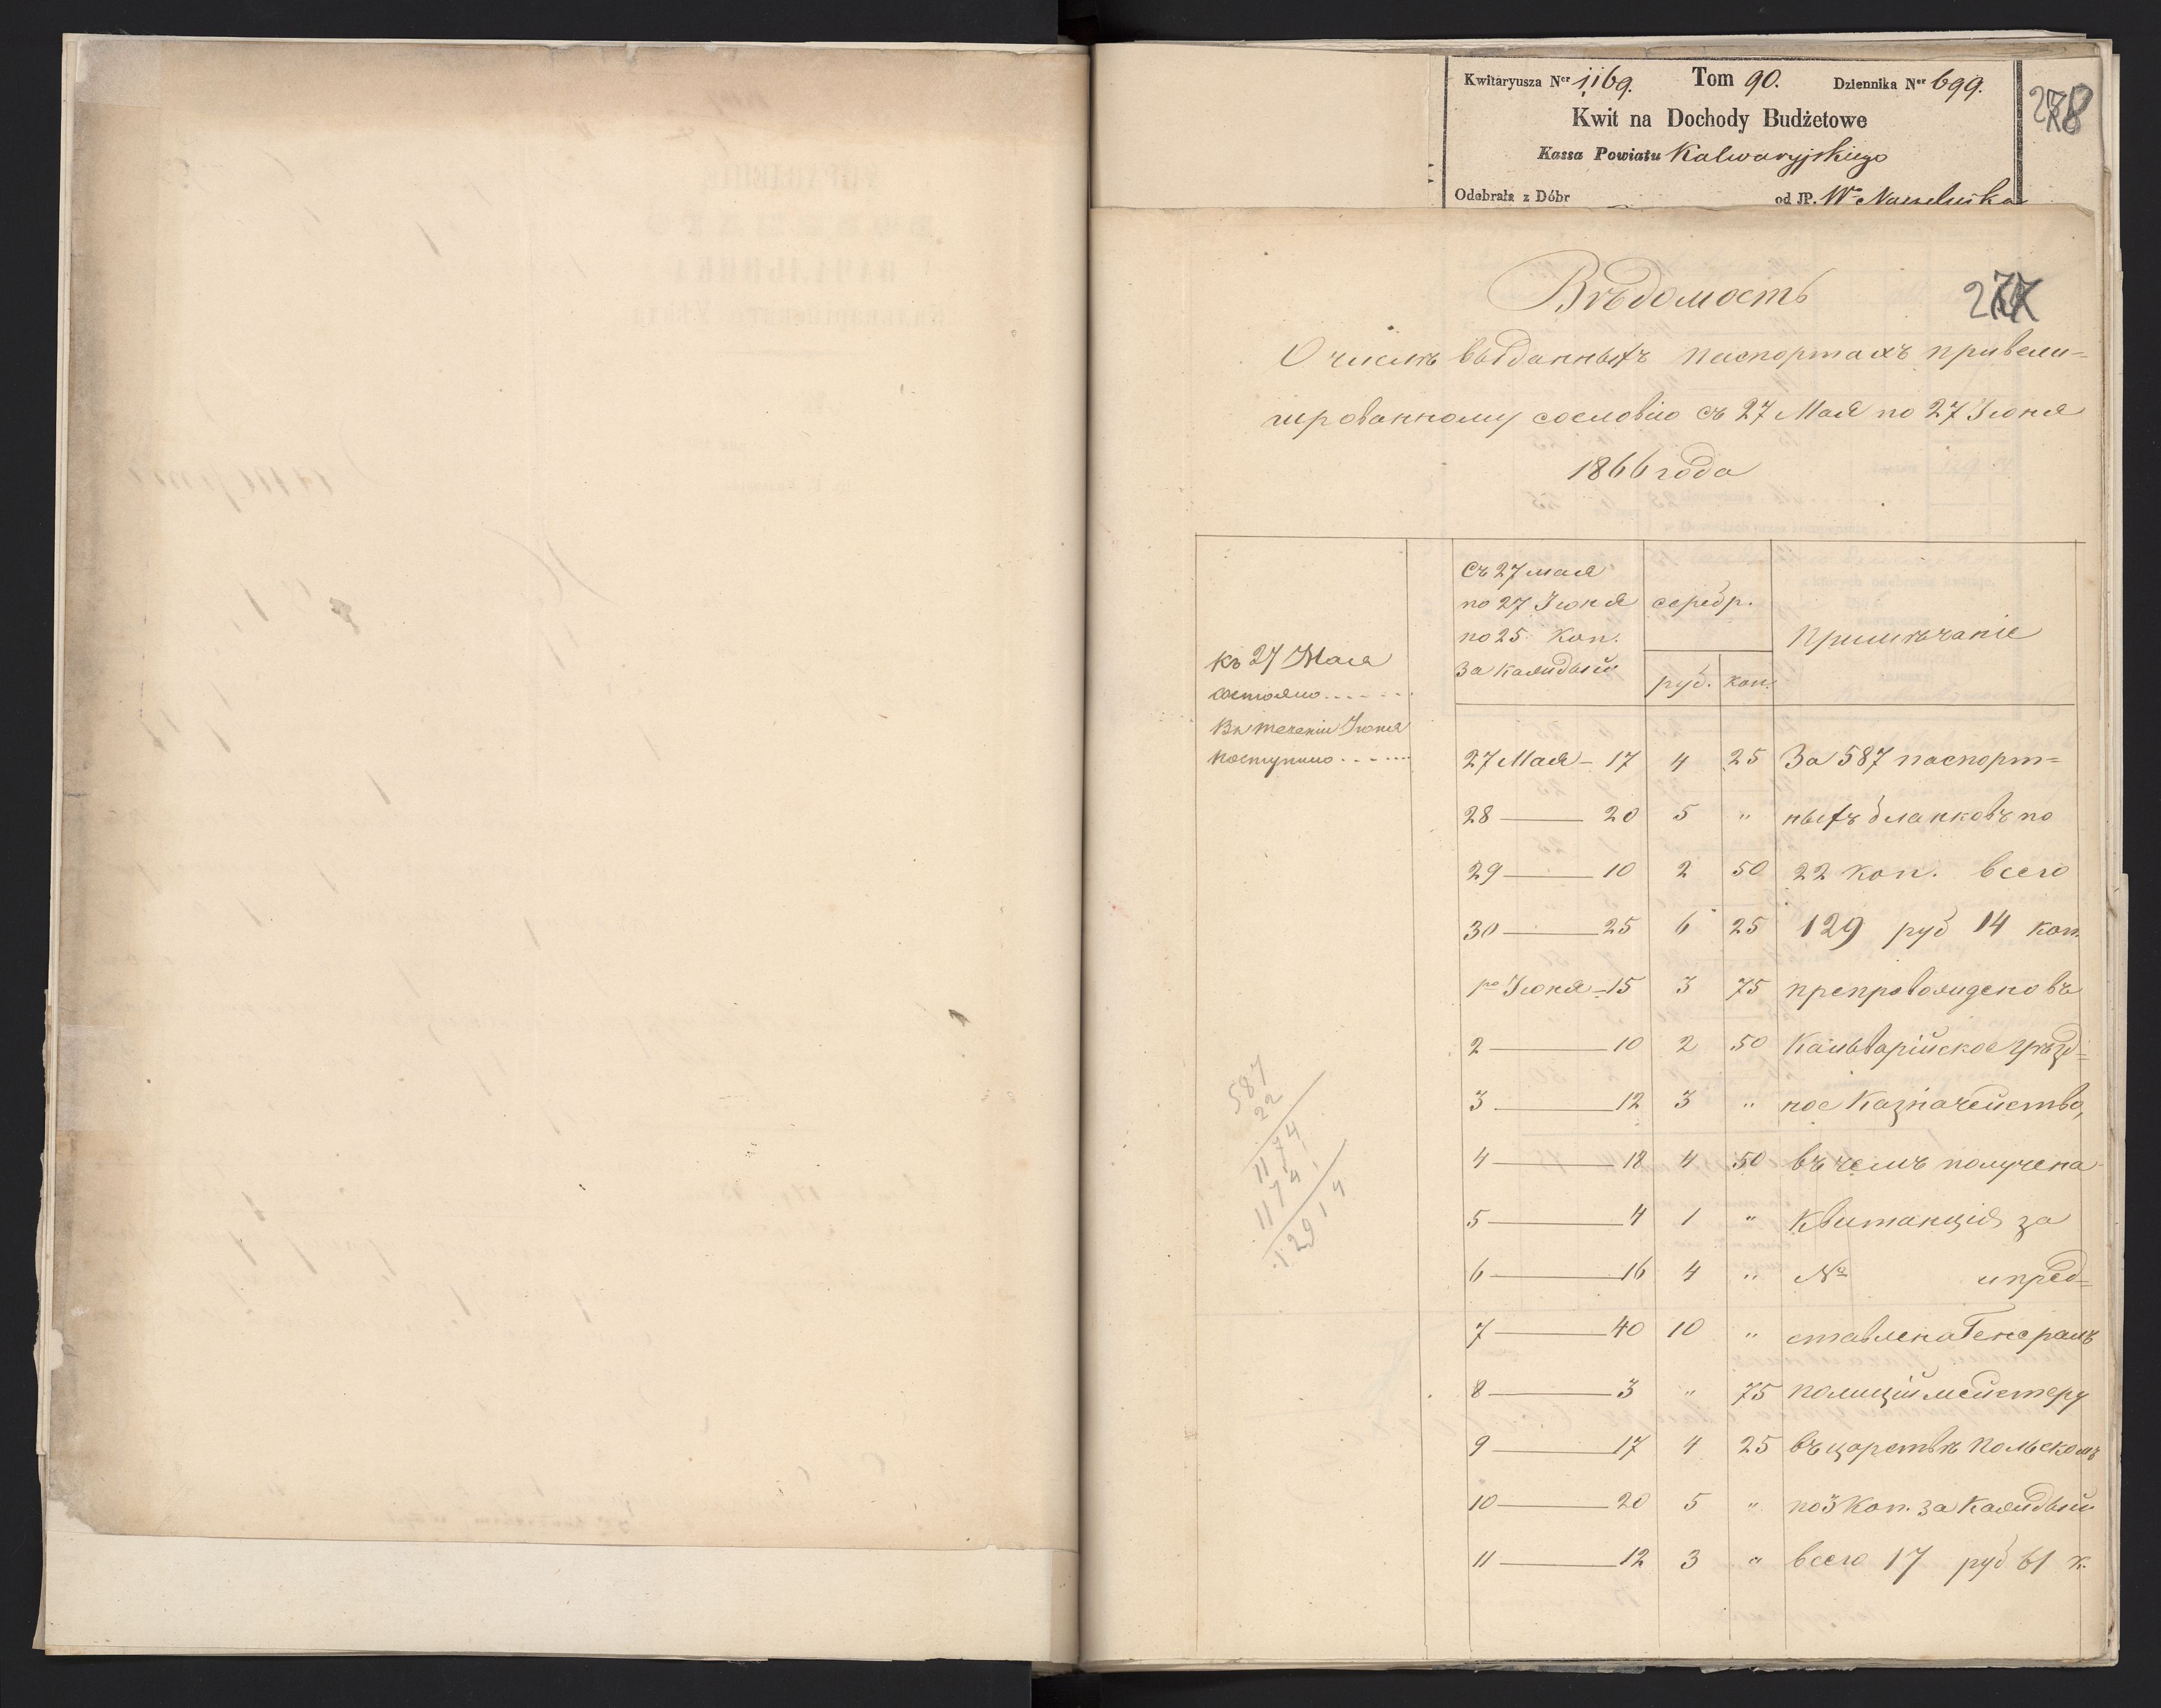 Kwitaryusza Ner 1169. Tom 90. Dziennika Ner 699.
278
Kwit na Dochody Budżetowe
Kassa Powiatu Kalwaryjskiego
Odebrała z Dóbr od JP. W
Вѣдомость
277
О числѣ выданныхъ паспортахъ привели-
гированному сословію съ 27 Мая по 27 Іюня
1866 года
Съ 27 мая
по 27 Іюня
по 25 коп.
За каждый
серебр.
руб. коп.
Примѣчаніе
къ 27 Мая
состояло
Въ теченіи Іюня
поступило
27 Мая - 17 4 25 За 587 паспорт=
28 — 20 5 " ныхъ бланковъ по
29 — 10 2 50 22 коп. всего
30 — 25 6 25 129 руб 14 коп.
1го Іюня - 15 3 75 препровождено въ
2 — 10 2 50 Кальварійское Уѣзд=
3 — 12 3 " ное Казначейство,
4 — 18 4 50 въ чемъ получена
5 — 4 1 " Квитанція за
6 — 16 4 " № и пред=
7 — 40 10 " ставлена Генералъ
8 — 3 " 75 полиціймейстеру
9 — 17 4 25 въ царствѣ Польскомъ
10 — 20 5 " по 3 Коп. за каждый
11 — 12 3 " всего 17 руб 61 к.
587
22
1174
1174
12914